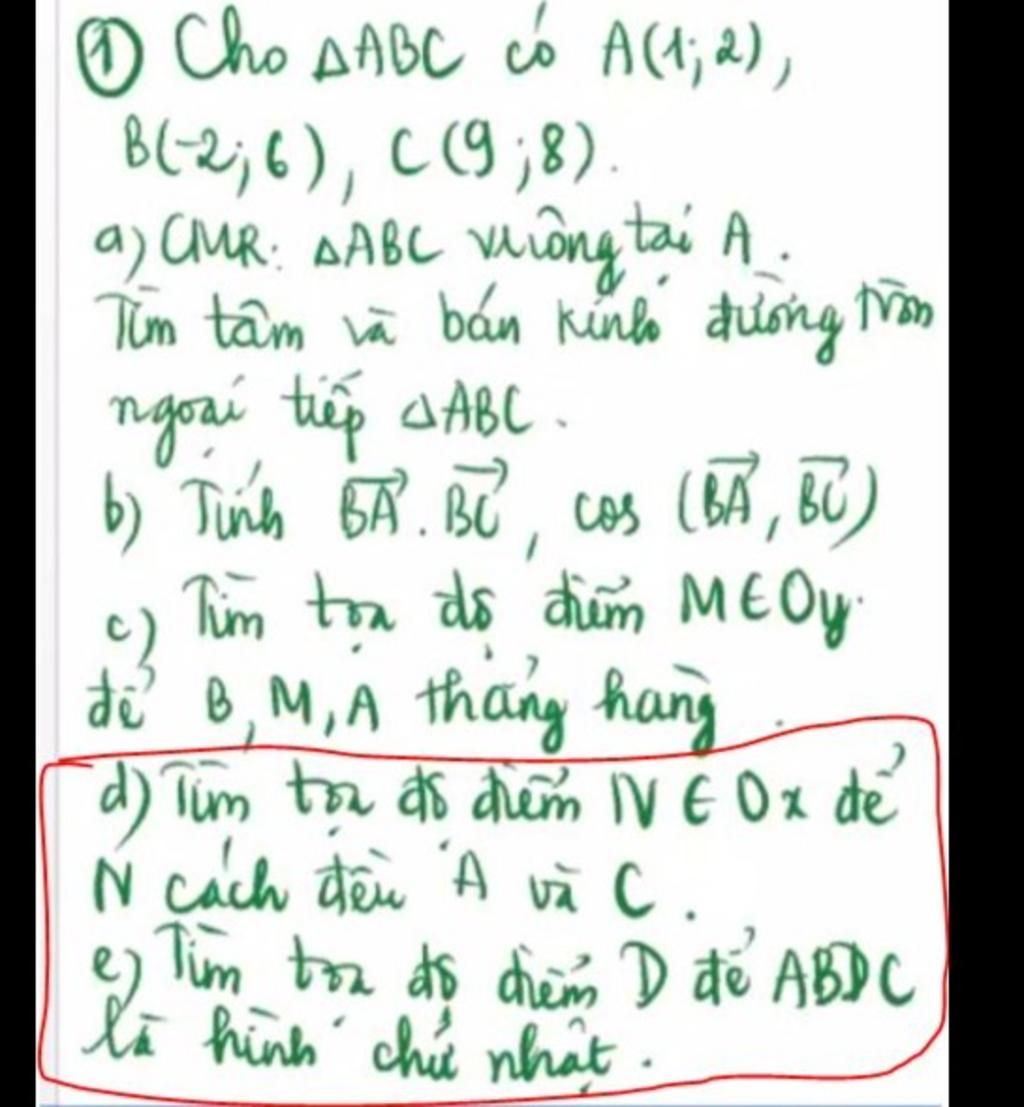 ① Cho ΔABC có A(1;2),
B(-2;6), C(9;8).
a) CMR: ΔABC vuông tại A.
Tìm tâm và bán kính đường tròn
ngoại tiếp ΔABC.
b) Tính \overrightarrow{BA}.\overrightarrow{BC}, cos (\overrightarrow{BA}, \overrightarrow{BC})
c) Tìm tọa độ điểm M∈Oy
để B, M, A thẳng hàng.
d) Tìm tọa độ điểm N ∈ Ox để
N cách đều A và C.
e) Tìm tọa độ điểm D để ABDC
là hình chữ nhật.